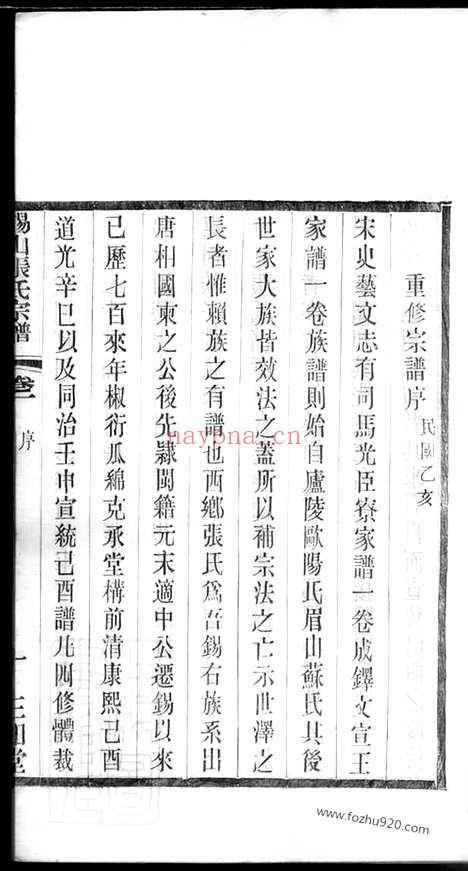 重修宗譜序 民國乙亥
宋史藝文志有司馬光臣寮家譜一卷成鐸文宣王
家譜一卷族譜則始自廬陵歐陽氏眉山蘇氏其後
世家大族皆效法之蓋所以補宗法之亡示世澤之
長者惟賴族之有譜也西鄉張氏爲吾錫右族系出
唐相國東之公後先隸閩籍元末適中公遷錫以來
已歷七百來年椒衍瓜綿克承堂構前清康熙己酉
道光辛巳以及同治壬申宣統己酉譜凡四修體裁
錫山張氏宗譜
序
nayona.cn
www.fozhu920.com